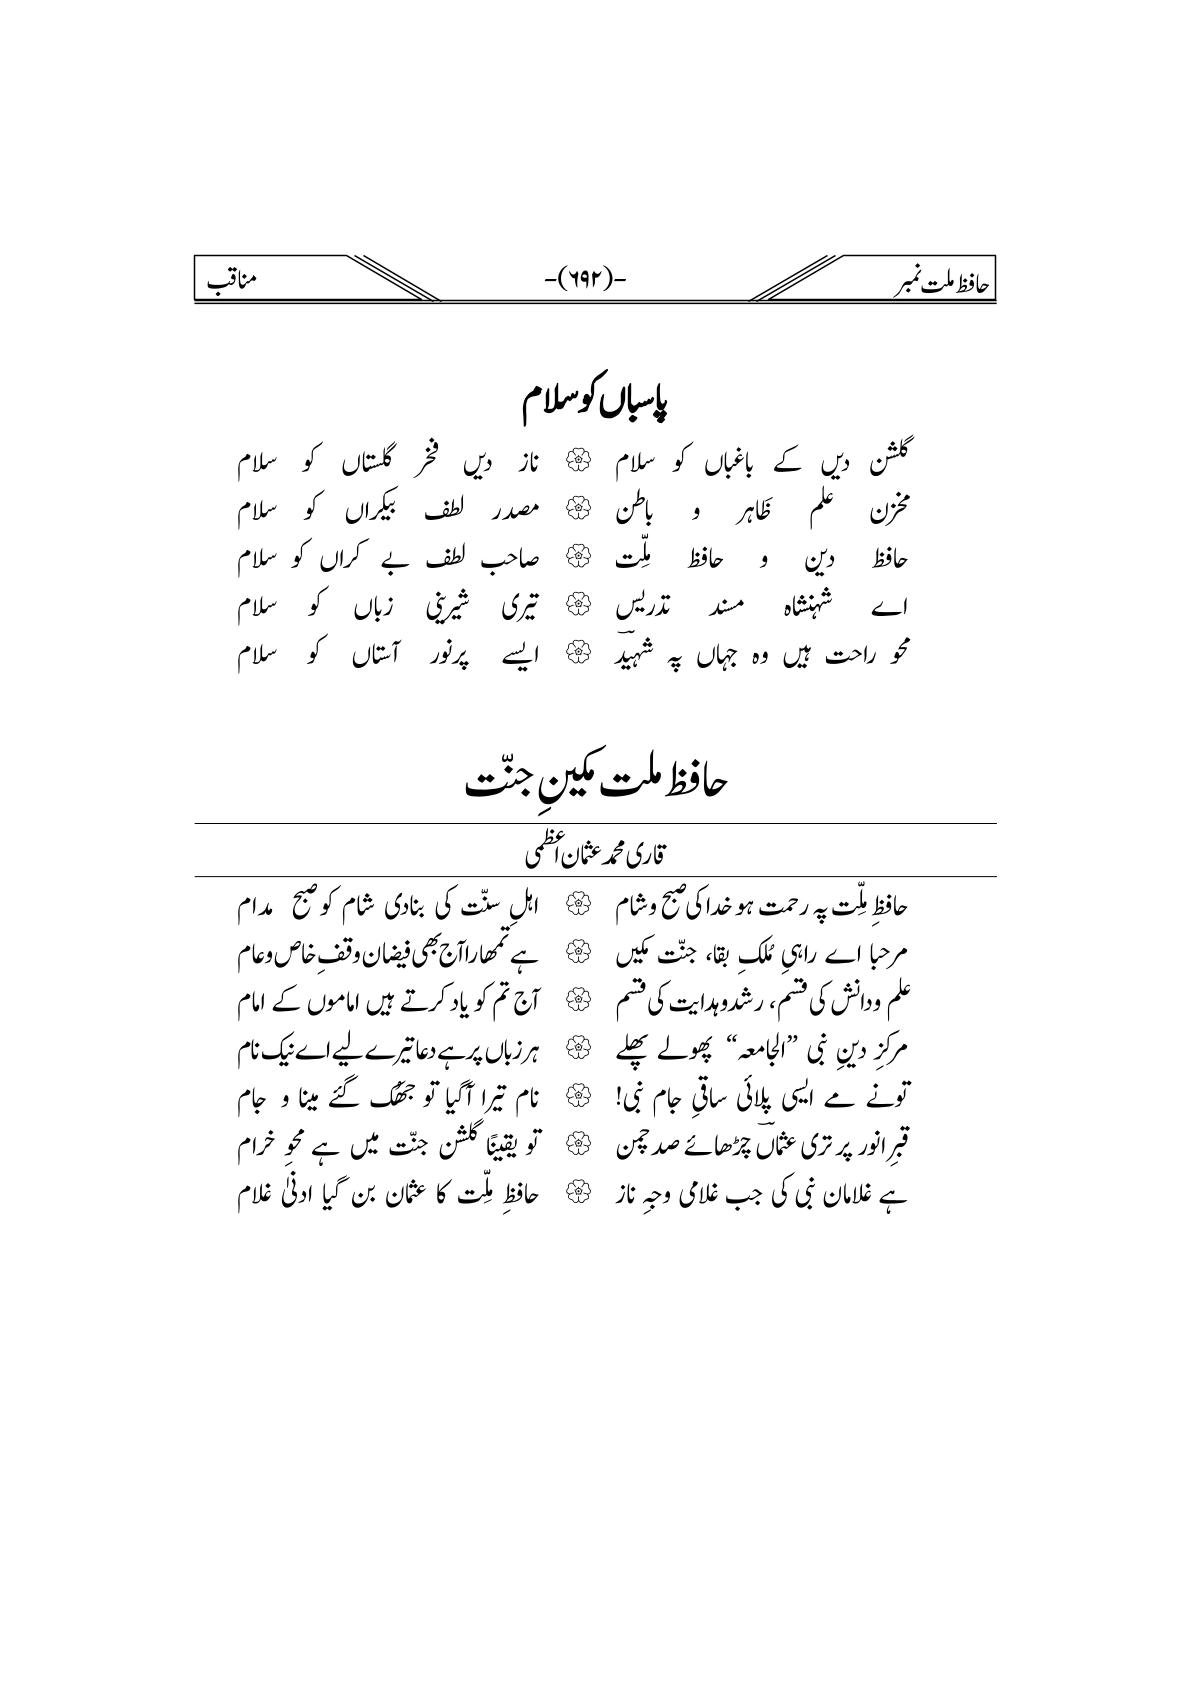 حافظ ملت نمبر -(۶۹۲)- مناقب
پاسباں کو سلام
گلشن دیں کے باغباں کو سلام ناز دیں فخر گلستاں کو سلام
مخزن علم ظاہر و باطن مصدر لطف بیکراں کو سلام
حافظ دین و حافظ ملّت صاحب لطف بے کراں کو سلام
اے شہنشاہ مسند تدریس تیری شیرینی زباں کو سلام
محو راحت ہیں وہ جہاں پہ شہیدؔ ایسے پرنور آستاں کو سلام
حافظ ملت مکینِ جنّت
قاری محمد عثمان اعظمی
حافظِ ملّت پہ رحمت ہو خدا کی صبح و شام اہلِ سنّت کی بنادی شام کو صبح مدام
مرحبا اے راہیِ مُلکِ بقا، جنّت مکیں ہے تمھارا آج بھی فیضان وقفِ خاص و عام
علم و دانش کی قسم، رشد و ہدایت کی قسم آج تم کو یاد کرتے ہیں اماموں کے امام
مرکزِ دینِ نبی ”الجامعہ“ پھولے پھلے ہر زباں پر ہے دعا تیرے لیے اے نیک نام
تونے مے ایسی پلائی ساقیِ جام نبی! نام تیرا آگیا تو جھُک گئے مینا و جام
قبرِ انور پر تری عثماںؔ چڑھائے صد چمن تو یقیناً گلشن جنّت میں ہے محوِ خرام
ہے غلامان نبی کی جب غلامی وجہِ ناز حافظِ ملّت کا عثمان بن گیا ادنیٰ غلام